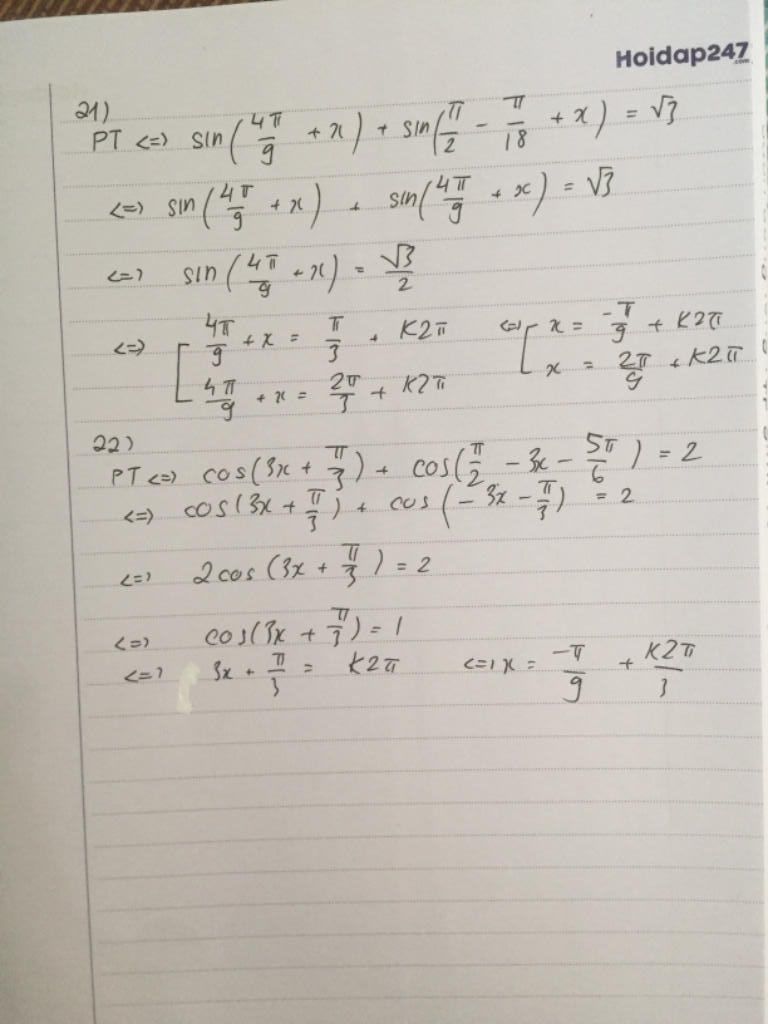 Hoidap247
.com
21)
PT <=> sin(4π/9 + x) + sin(π/2 - π/18 + x) = √3
<=> sin(4π/9 + x) + sin(4π/9 + x) = √3
<=> sin(4π/9 + x) = √3/2
<=> [ 4π/9 + x = π/3 + K2π <=> [ x = -π/9 + K2π
4π/9 + x = 2π/3 + K2π x = 2π/9 + K2π
22)
PT <=> cos(3x + π/3) + cos(π/2 - 3x - 5π/6) = 2
<=> cos(3x + π/3) + cos(-3x - π/3) = 2
<=> 2cos(3x + π/3) = 2
<=> cos(3x + π/3) = 1
<=> 3x + π/3 = K2π <=> x = -π/9 + K2π/3